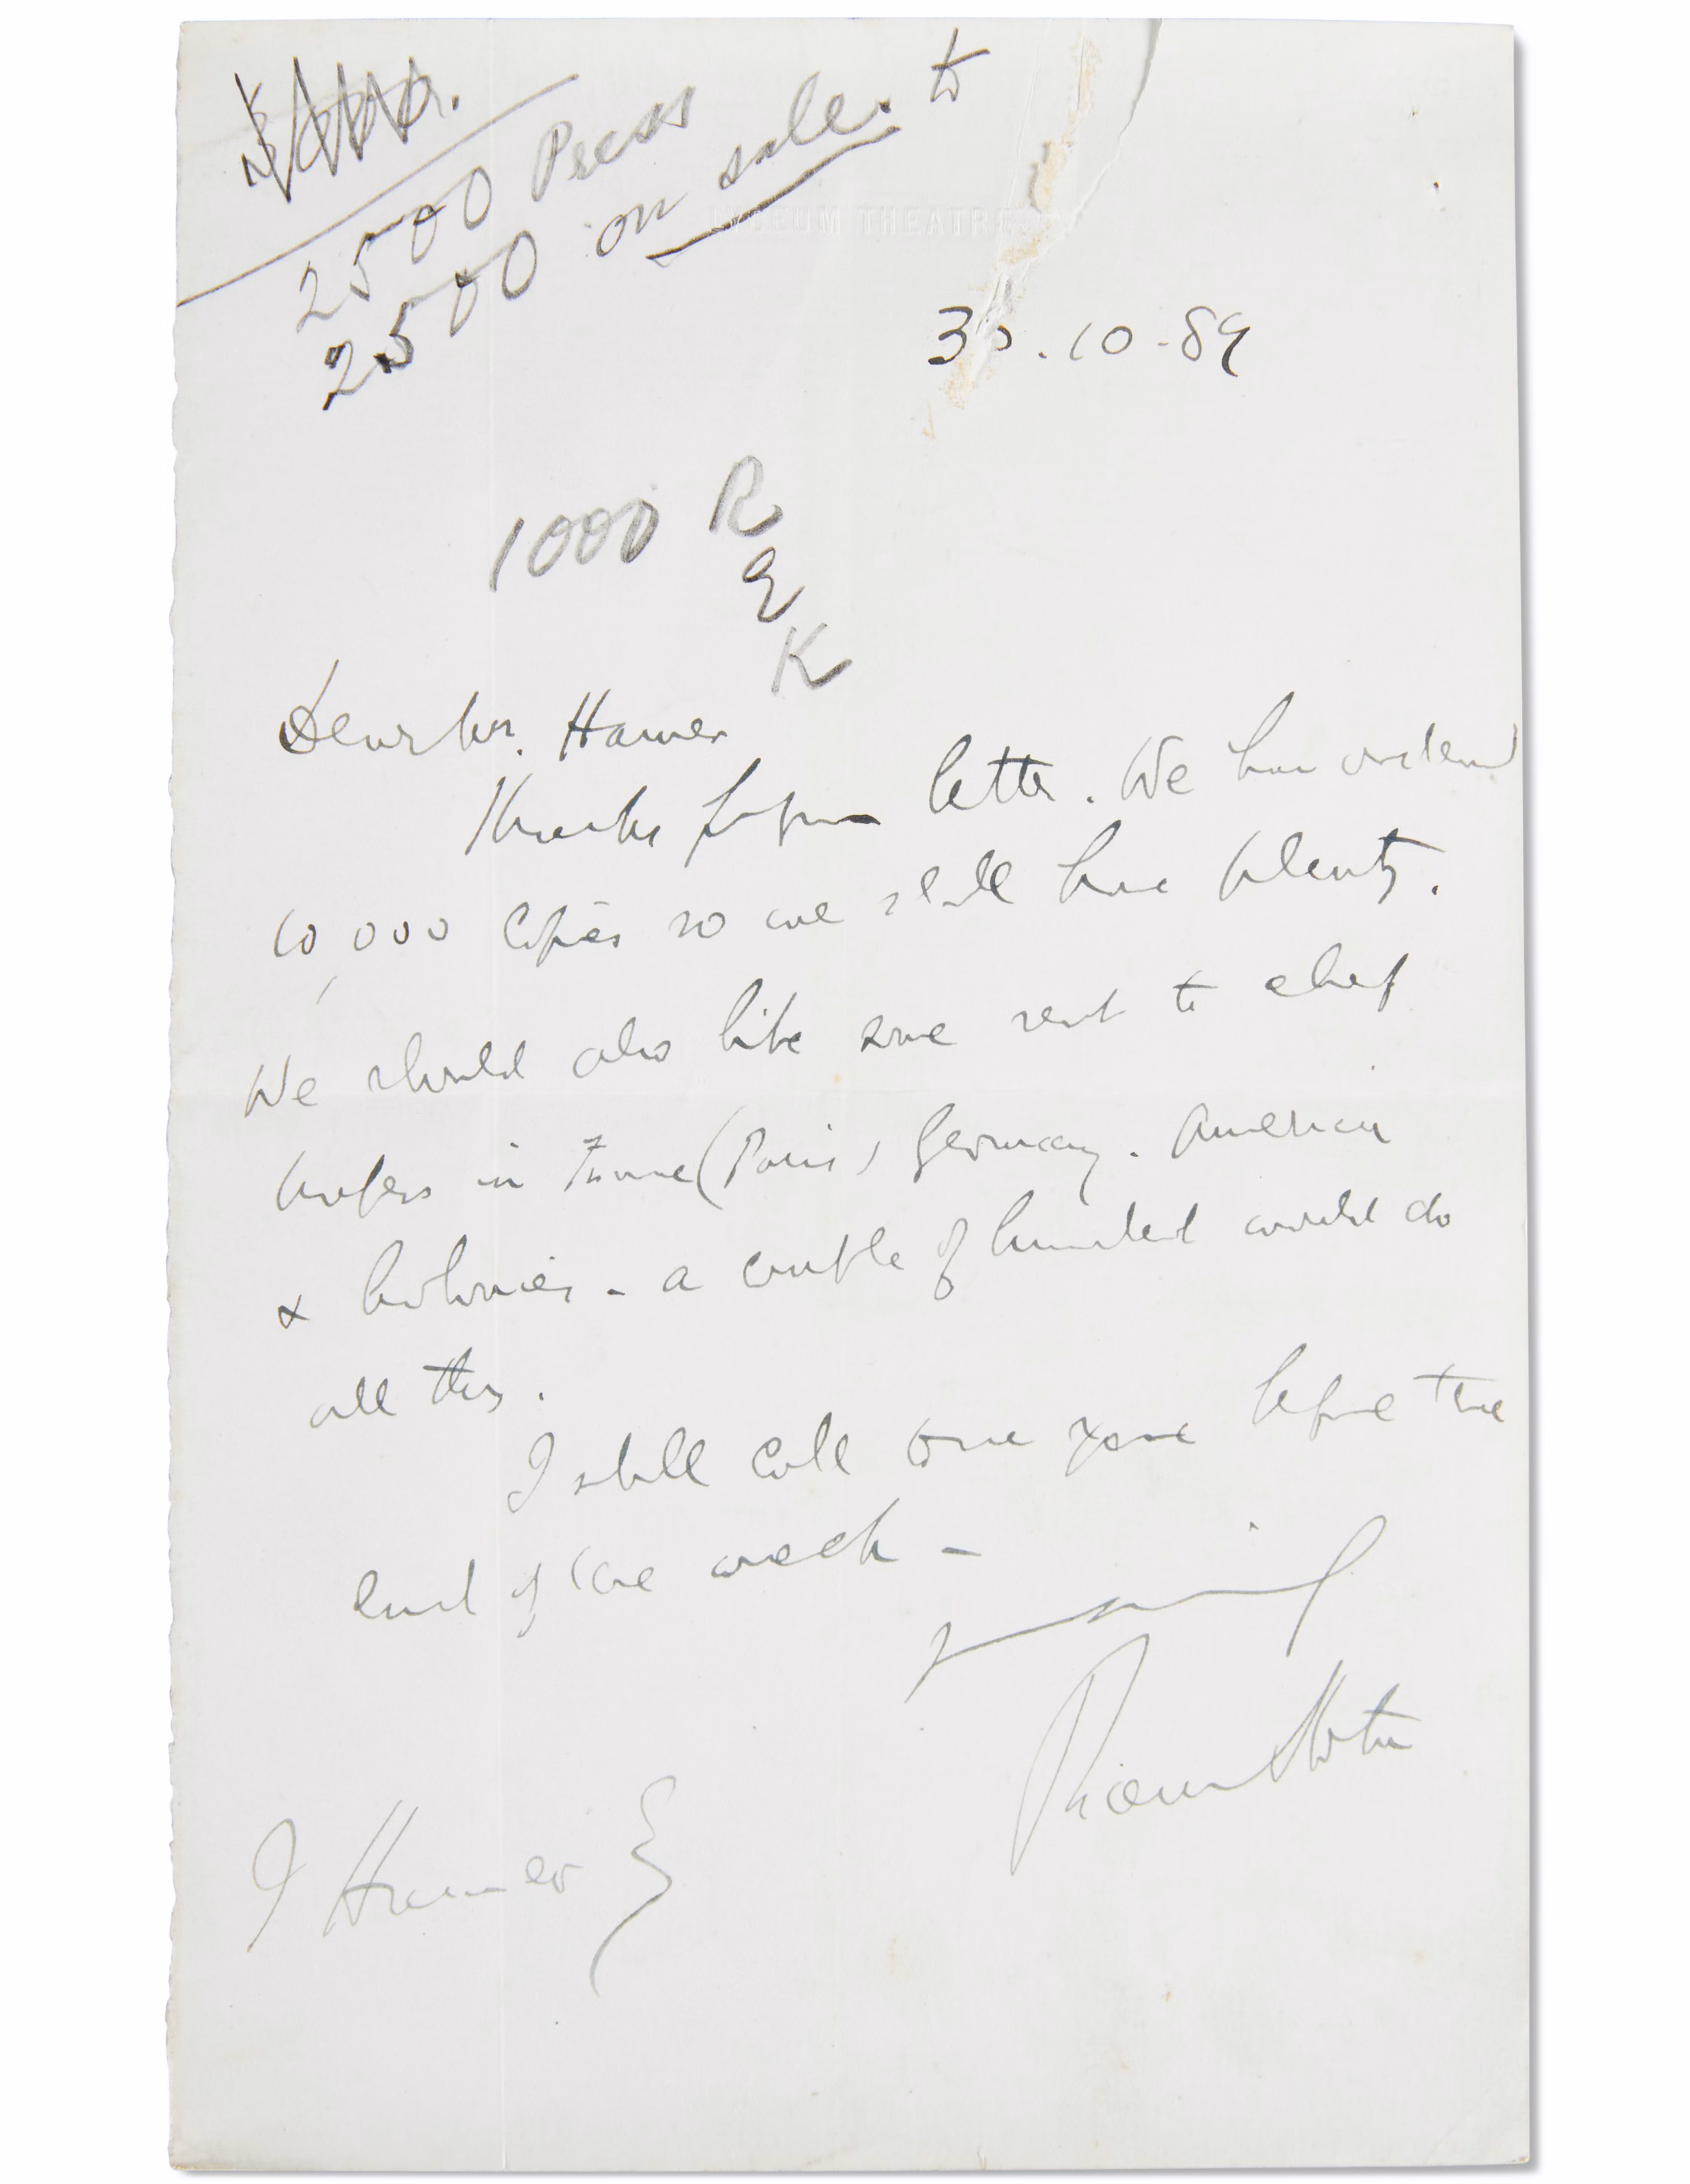 2500 Press
2500 on sale. to
LYCEUM THEATRE
30.10-89
1000 R
&
K
Dear Mr. Hamer
Thanks for your letter. We have ordered
10,000 copies so we shall have plenty.
We should also like some sent to chief
papers in France (Paris) Germany. American
& Colonies - a couple of hundred would do
all this.
I shall call some time before the
end of the week -
Bram Stoker
J Hamer Esq